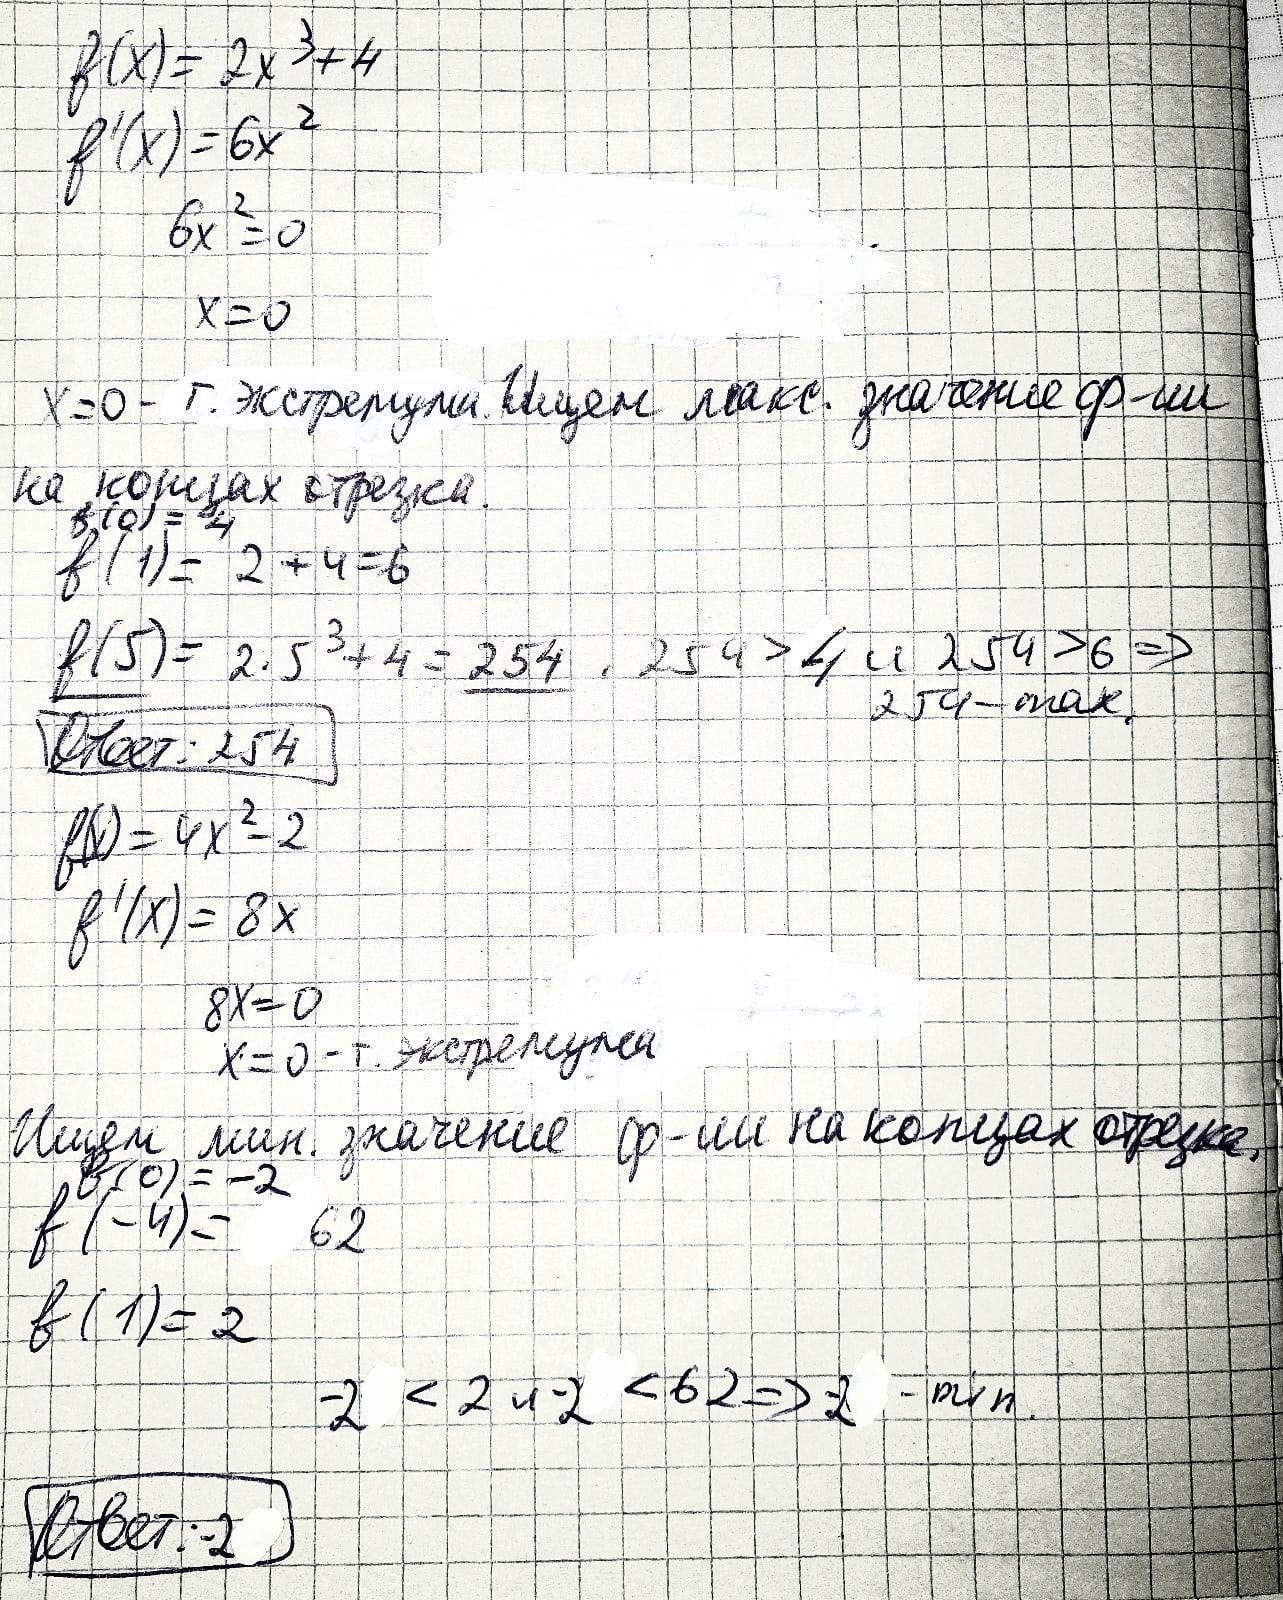 f(x) = 2x³+4
f'(x) = 6x²
6x²=0
x=0
x=0 - т. экстремума. Ищем макс. значение ф-ии
на концах отрезка.
f(0) = 4
f(1) = 2+4=6
f(5) = 2·5³+4 = 254 . 254>4 и 254>6 =>
254 - max.
Ответ: 254
f(x) = 4x²-2
f'(x) = 8x
8x=0
x=0 - т. экстремума
Ищем мин. значение ф-ии на концах отрезка.
f(0) = -2
f(-4) = 62
f(1) = 2
-2 < 2 и -2 < 62 => -2 - min.
Ответ: -2